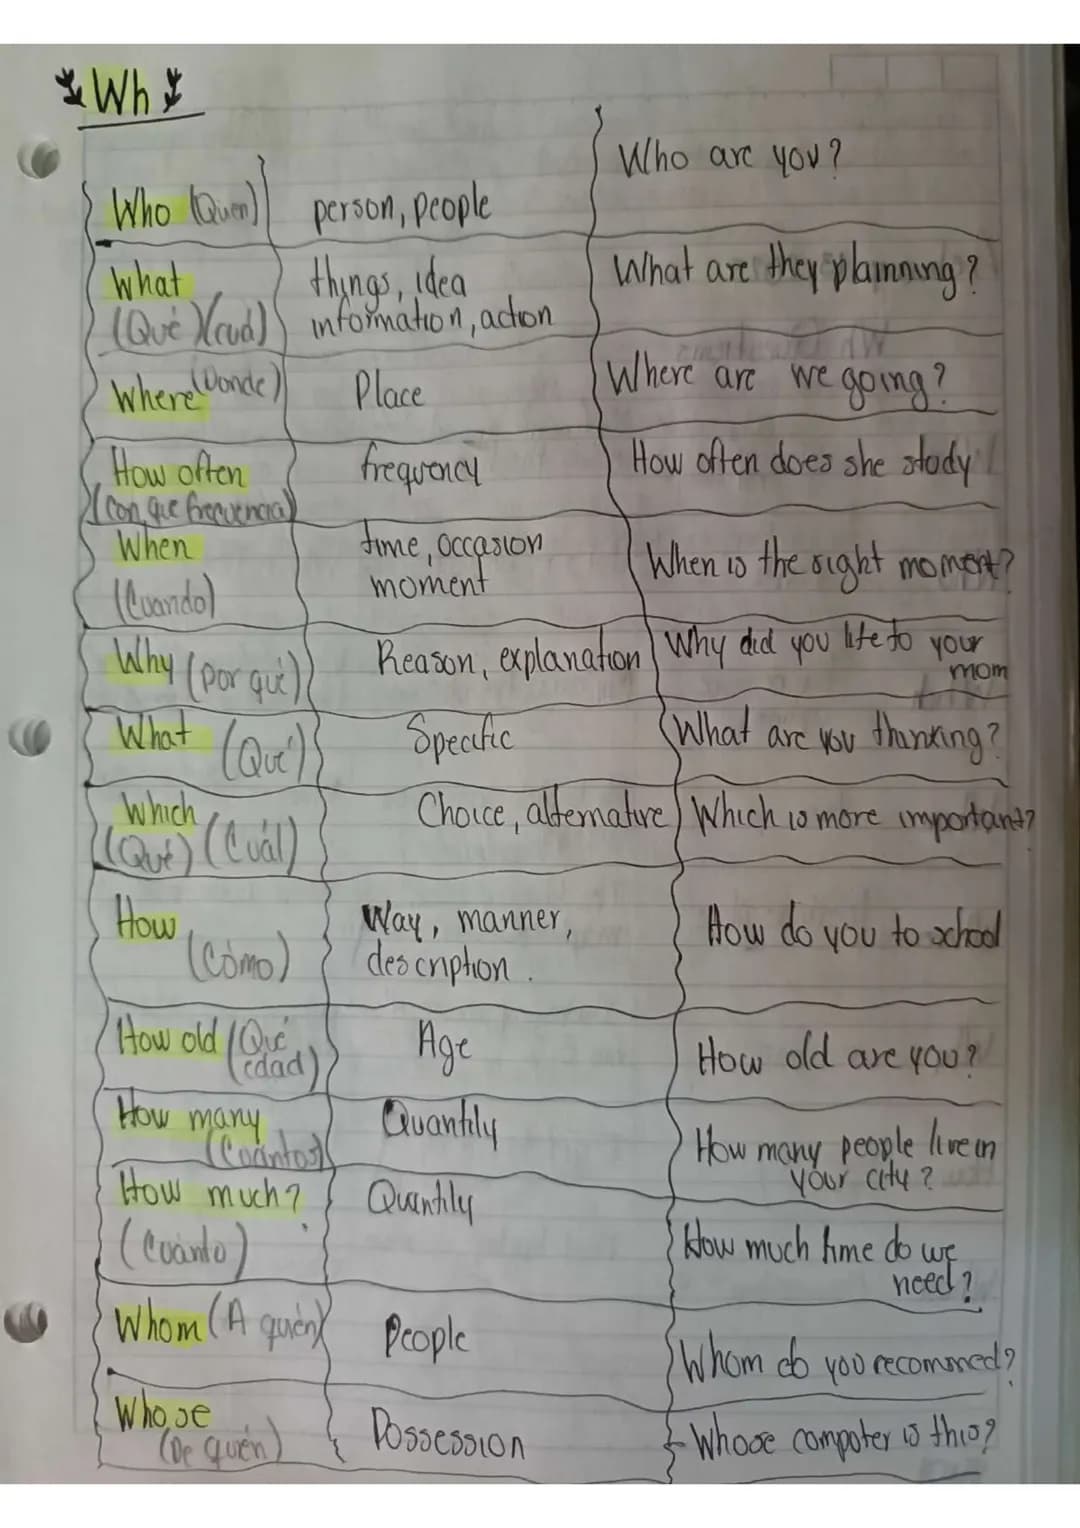 Wh
Who are you?
Who (Quen) person, people
What things, idea What are they plainning?
(Qué) (cuál) information, action
Where (Donde) Place Where are we going?
How often frequency How often does she study
(Con que frecuencia)
When time, occasion When is the right moment?
(Cuando) moment
Why (por qué) Reason, explanation Why did you life to your
mom
What (Qué) Specific What are you thinking?
Which Choice, alternative Which is more important?
(Qué) (Cuál)
How Way, manner, How do you to school
(Cómo) description.
How old (Qué Age How old are you?
edad)
How many Quantily How many people live in
(Cuantos) your city?
How much? Quantily
(Cuánto) How much time do we
need?
Whom (A quién) People Whom do you recommed?
Whose Possession Whose computer is this?
(De quién)